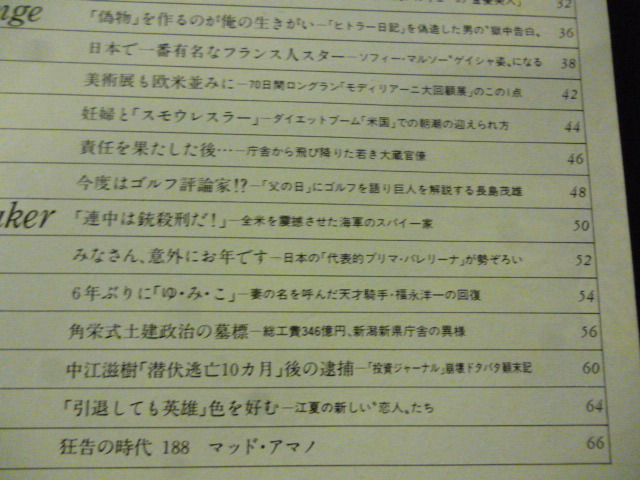 32
「偽物」を作るのが俺の生きがい—「ヒトラー日記」を偽造した男の〝獄中告白〟 36
日本で一番有名なフランス人スター—ソフィー・マルソー〝ゲイシャ姿〟になる 38
美術展も欧米並みに—70日間ロングラン「モディリアーニ大回顧展」のこの1点 42
妊婦と「スモウレスラー」—ダイエットブーム「米国」での朝潮の迎えられ方 44
責任を果たした後…—庁舎から飛び降りた若き大蔵官僚 46
今度はゴルフ評論家!?—「父の日」にゴルフを語り巨人を解説する長島茂雄 48
aker
「連中は銃殺刑だ!」—全米を震撼させた海軍のスパイ一家 50
みなさん、意外にお年です—日本の「代表的プリマ・バレリーナ」が勢ぞろい 52
6年ぶりに「ゆ・み・こ」—妻の名を呼んだ天才騎手・福永洋一の回復 54
角栄式土建政治の墓標—総工費346億円、新潟新県庁舎の異様 56
中江滋樹「潜伏逃亡10カ月」後の逮捕—「投資ジャーナル」崩壊ドタバタ顚末記 60
「引退しても英雄」色を好む—江夏の新しい〝恋人〟たち 64
狂告の時代 188 マッド・アマノ 66